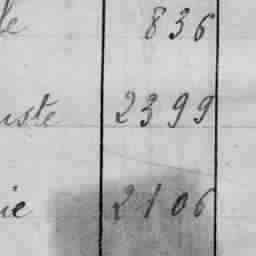 le 836
uste 2399
ie 2106